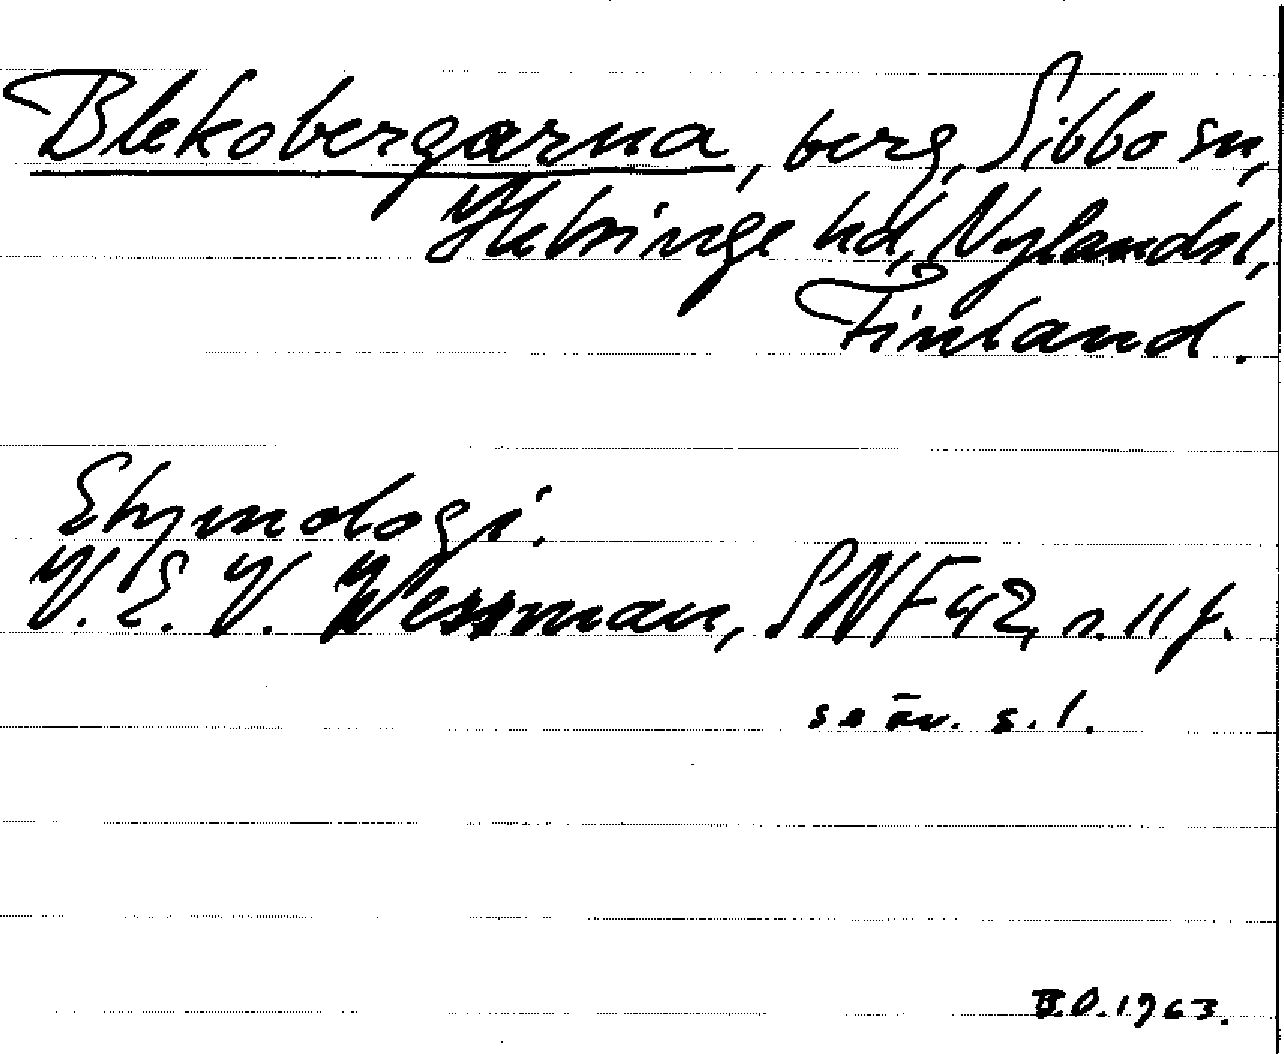 Blekobergarna, berg, Sibbo sn,
Helsinge hd, Nylands l,
Finland.
Etymologi.
V. E. V. Wessman, SNF 42, s. 11 f.
se äv. s. 1.
B.O. 1963.